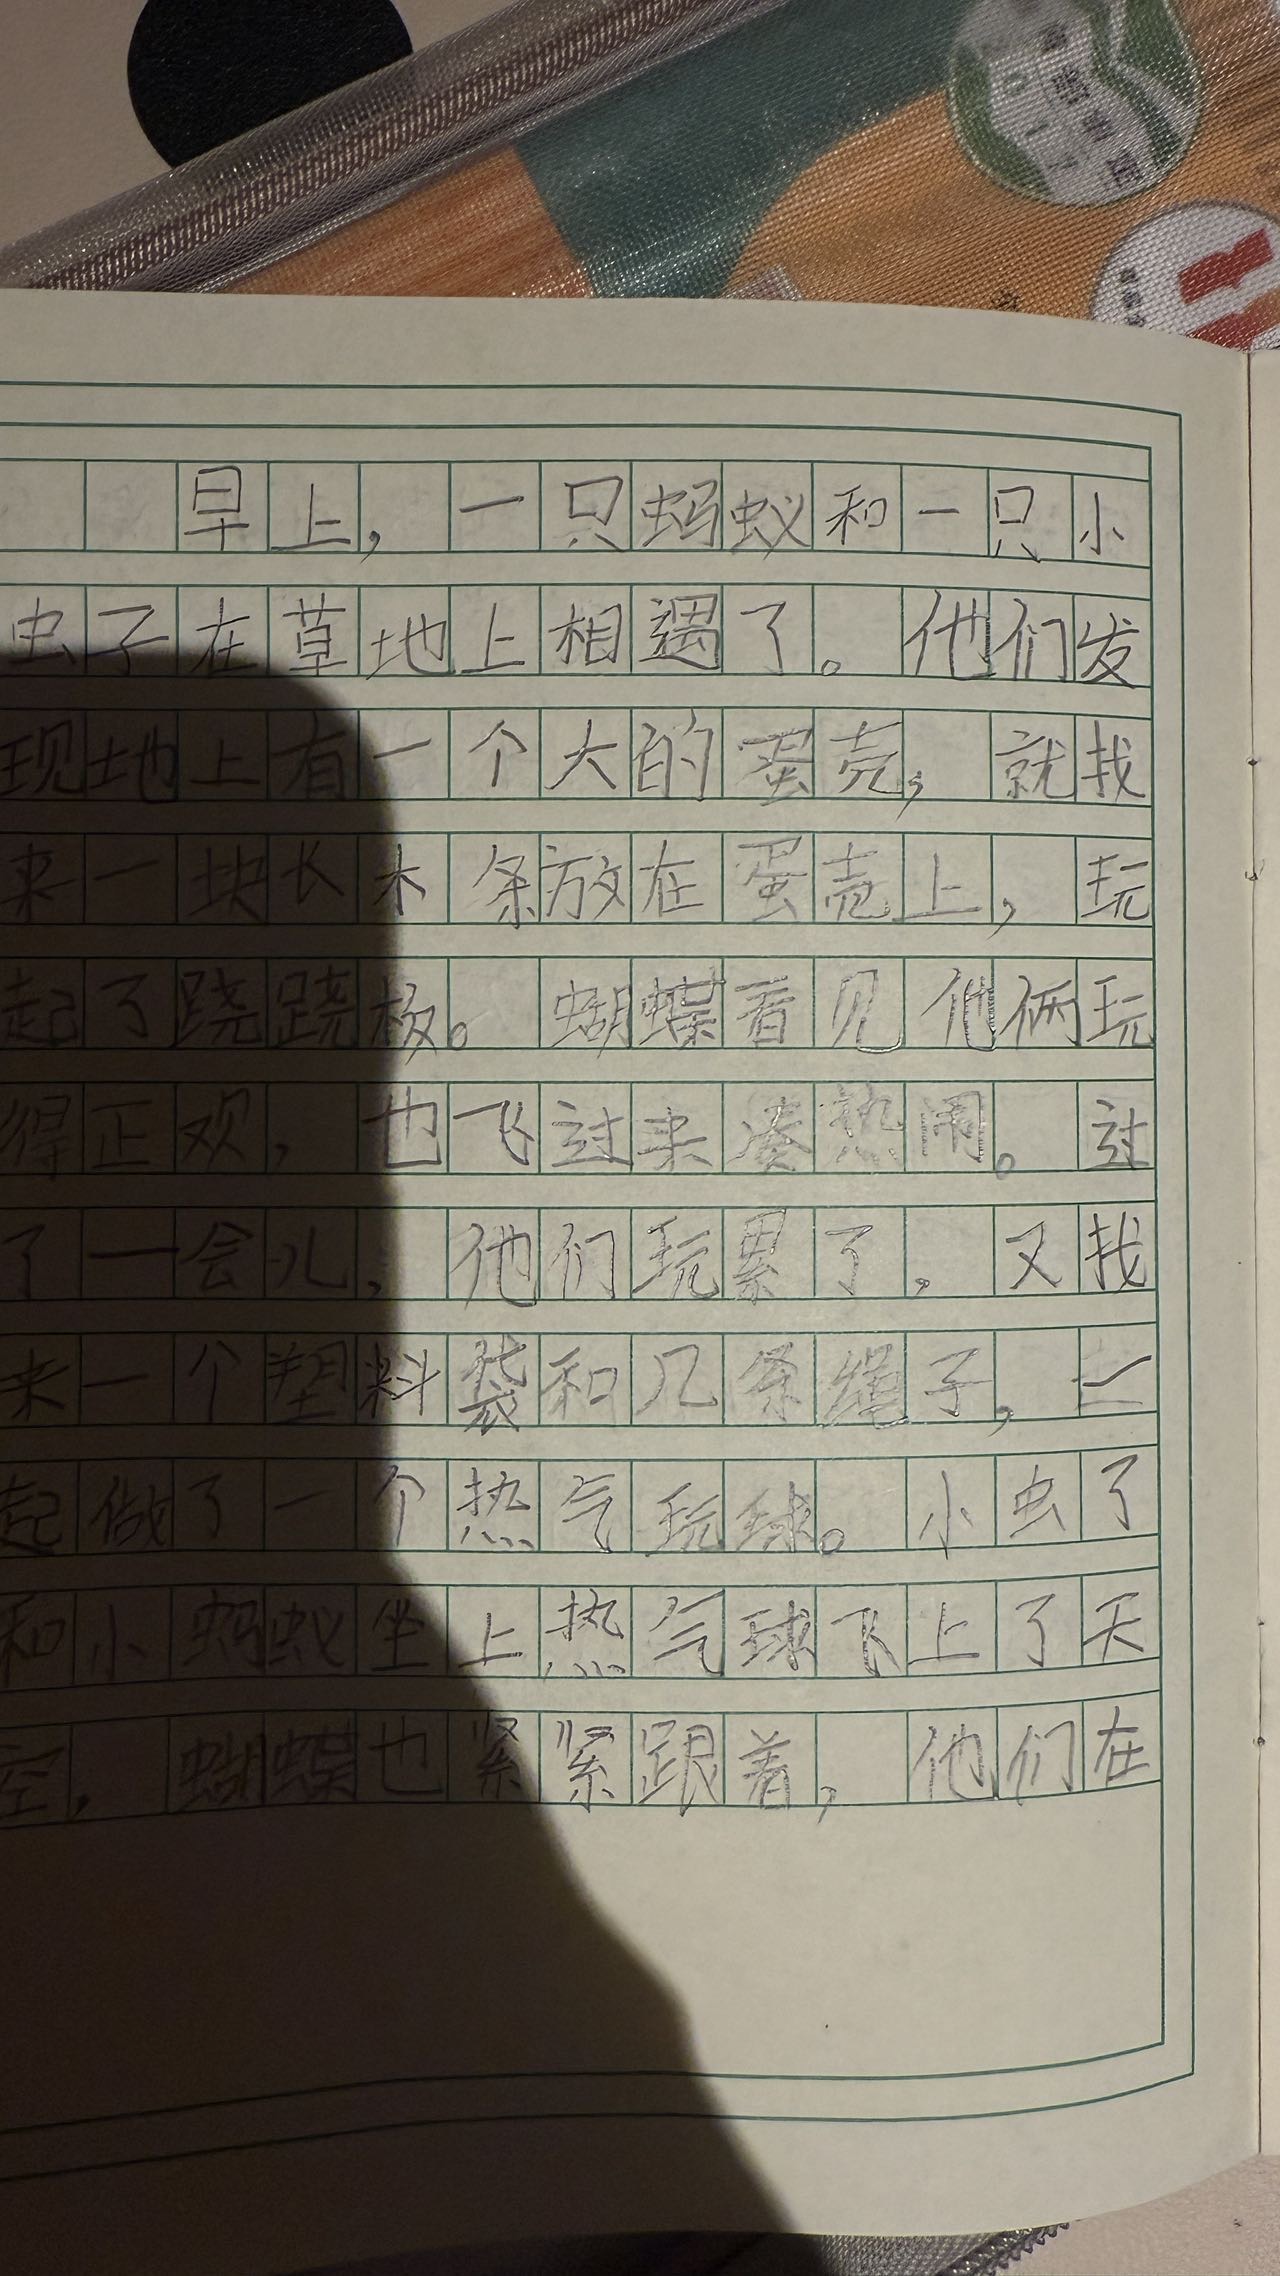 早上，一只蚂蚁和一只小
虫子在草地上相遇了。他们发
现地上有一个大的蛋壳，就找
来一块长木条放在蛋壳上，玩
起了跷跷板。蝴蝶看见他俩玩
得正欢，也飞过来凑热闹。过
了一会儿，他们玩累了，又找
来一个塑料袋和几条绳子，一
起做了一个热气玩球。小虫了
和小蚂蚁坐上热气球飞上了天
空，蝴蝶也紧紧跟着，他们在